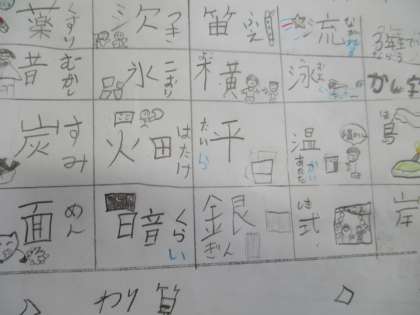 薬 くすり 次 つぎ 笛 ふえ 流 ながれる
昔 むかし 氷 こおり 横 泳 かん字
炭 すみ 畑 はたけ 平 たいら 温 あたたかい 島
面 めん 暗 くらい 銀 ぎん 式 岸
わり算